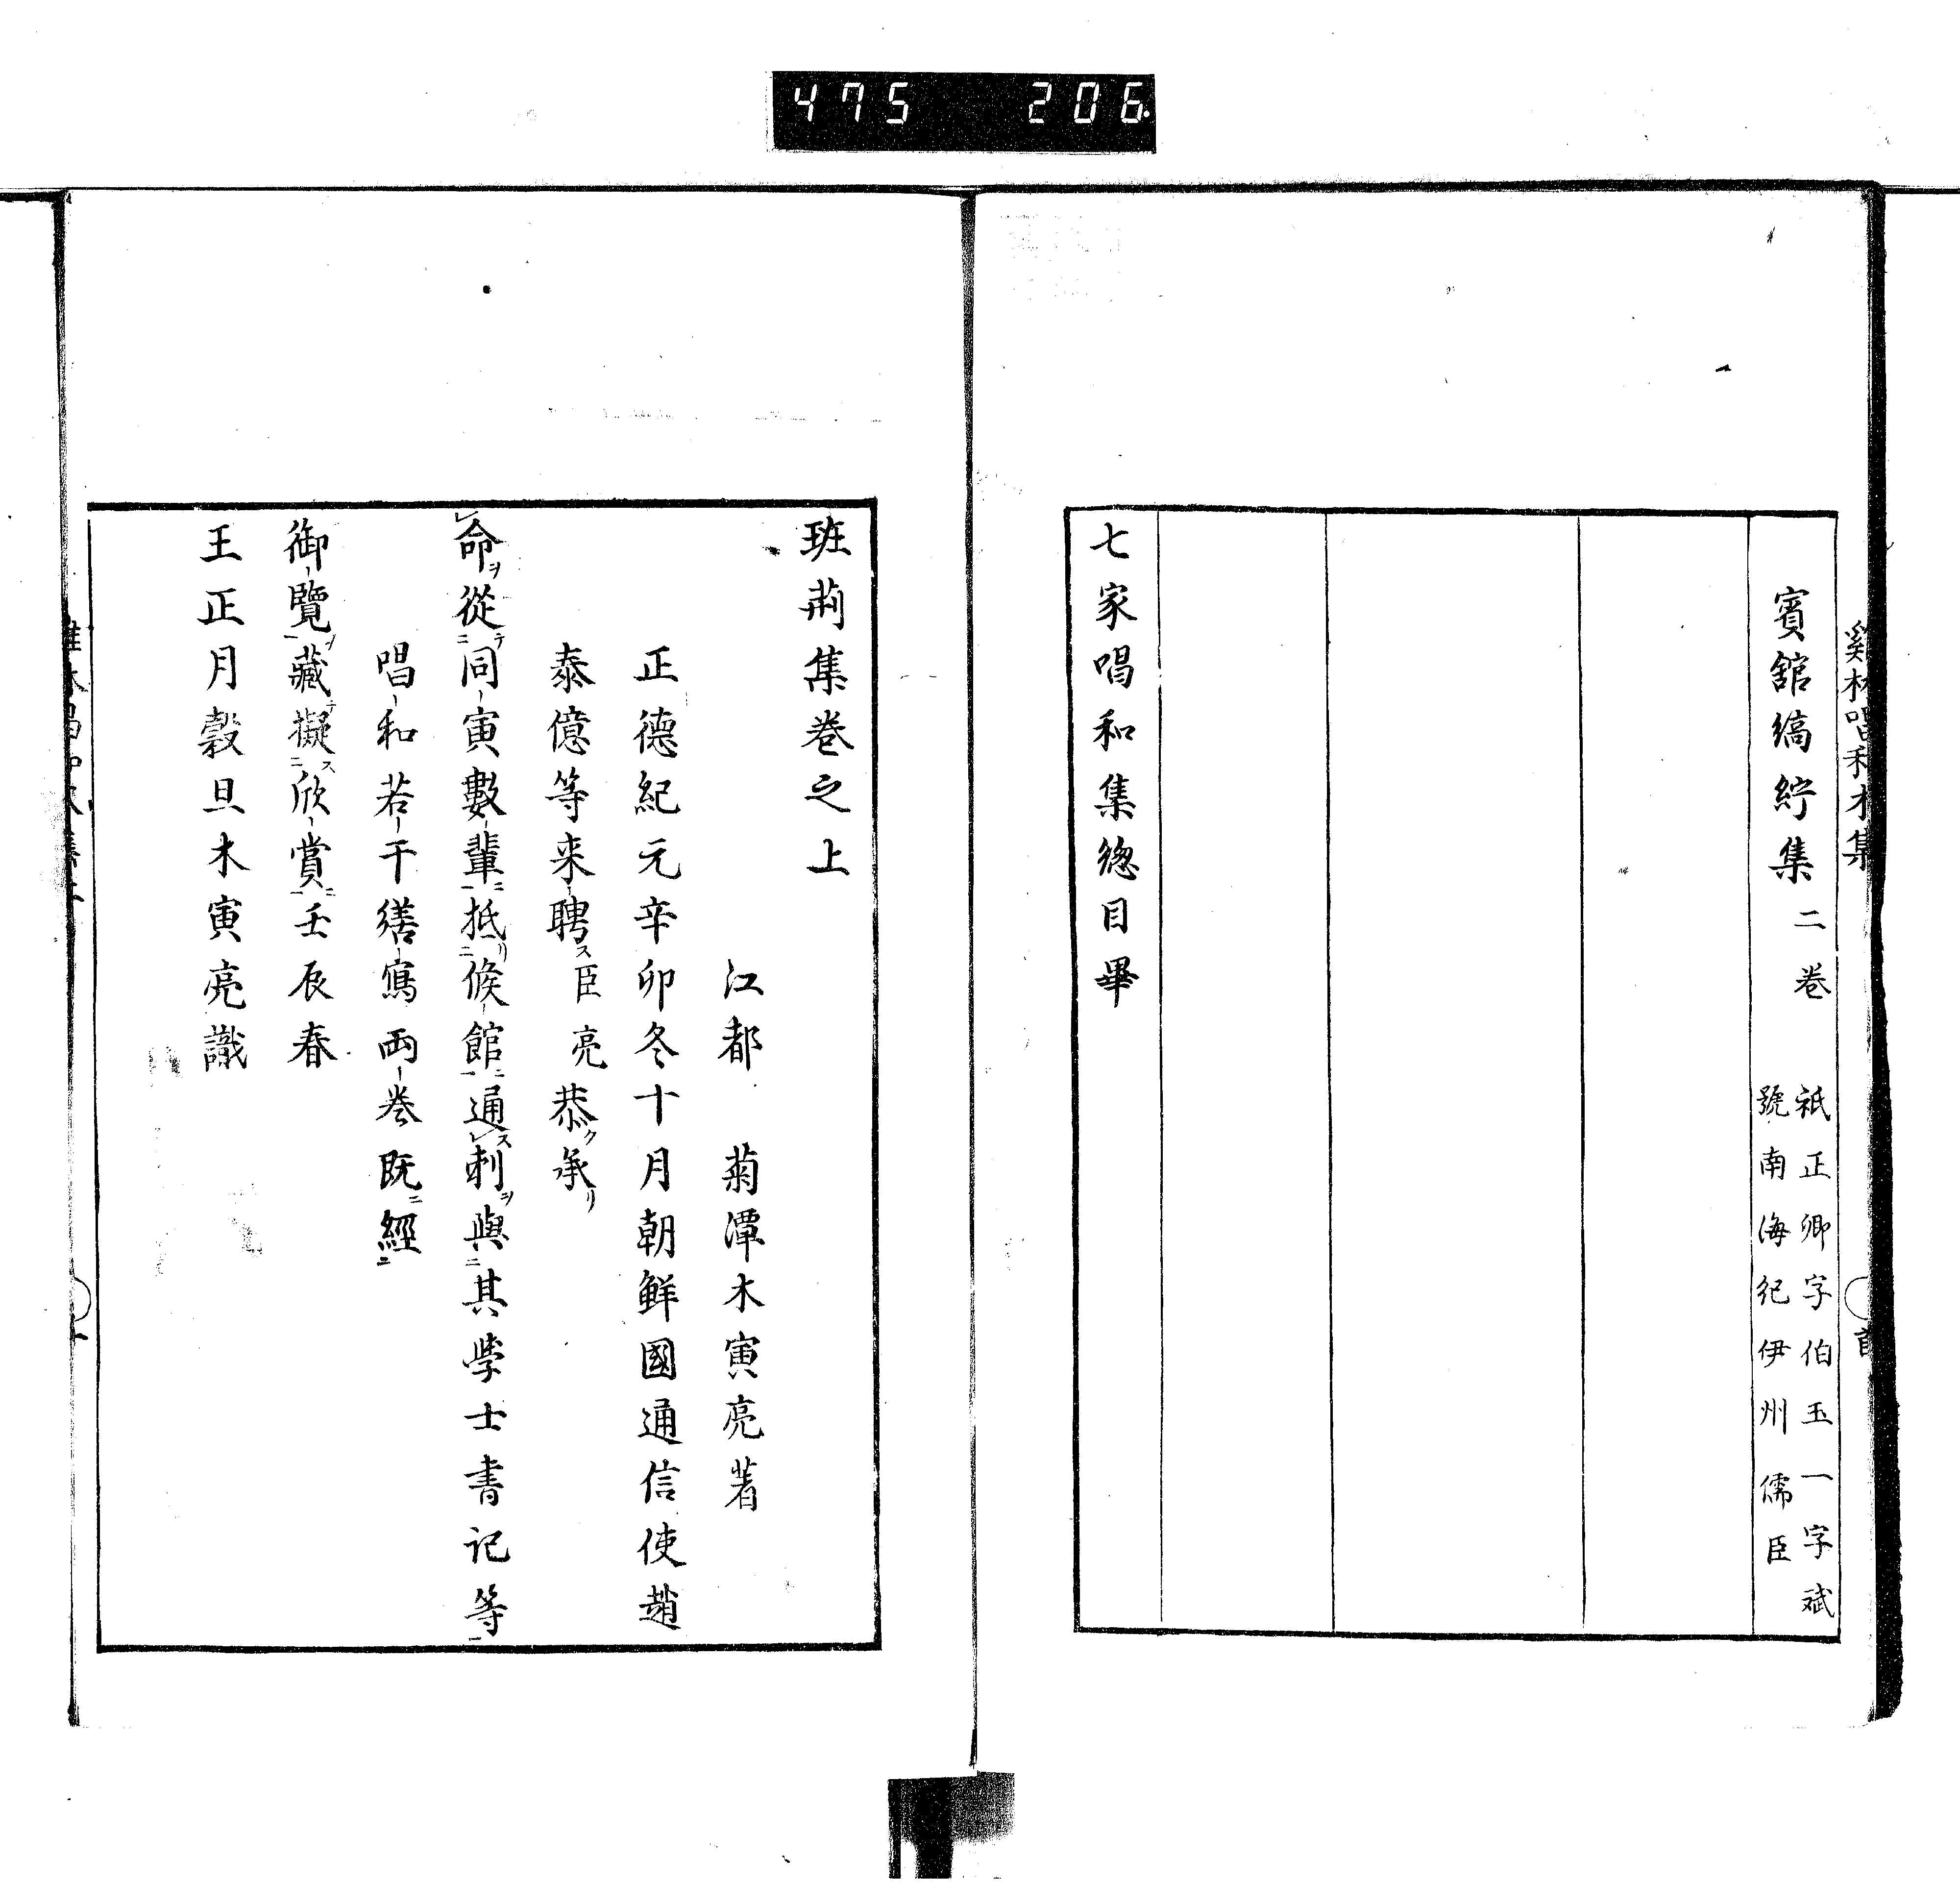 475 206
賓館縞紵集 二卷
祇正卿字伯玉一字斌
號南海紀伊州儒臣
七家唱和集總目畢
班荊集卷之上
江都 菊潭木寅亮著
正德紀元辛卯冬十月朝鮮國通信使趙
泰億等来聘ス臣亮恭ク承リ
命ヲ從テ同寅數輩ニ抵リ候館ニ通ス刺ヲ與其学士書记等
唱和若干繕寫兩卷既ニ經
御覽ヲ藏テ擬ス欣賞ニ壬辰春
王正月穀旦木寅亮識